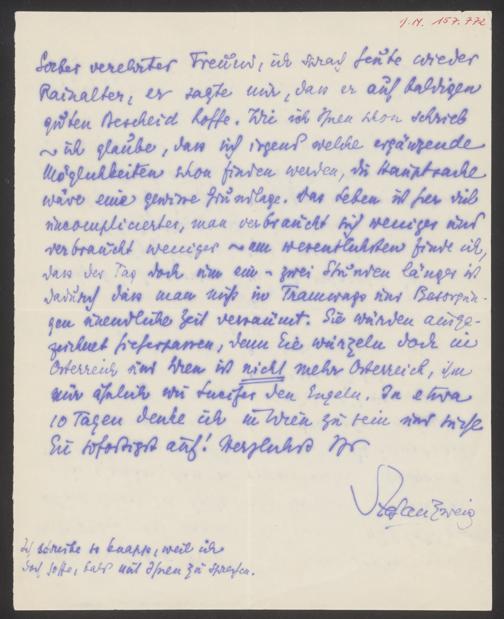 I.N. 157.772
Lieber verehrter Freund, ich sprach heute wieder
Rainalter, er sagte mir, dass er auf baldigen
guten Bescheid hoffe. Wie ich Ihnen schon schrieb
– ich glaube, dass sich irgend welche ergänzende
Möglichkeiten schon finden werden, die Hauptsache
wäre eine gewisse Grundlage. Das Leben ist hier viel
uncomplicierter, man verbraucht sich weniger und
verbraucht weniger – am wesentlichsten finde ich,
dass der Tag doch um ein – zwei Stunden länger ist
dadurch dass man nicht in Tramways und Besorgun-
gen unendliche Zeit versäumt. Sie würden ausge-
zeichnet hieherpassen, denn Sie wurzeln doch in
Österreich und Wien ist nicht mehr Österreich, ihm
nur ähnlich wie Lucifer den Engeln. In etwa
10 Tagen denke ich in Wien zu sein und suche
Sie sofortigst auf! Herzlichst Ihr
Stefan Zweig
Ich schreibe so knapp, weil ich
doch hoffe, bald mit Ihnen zu sprechen.